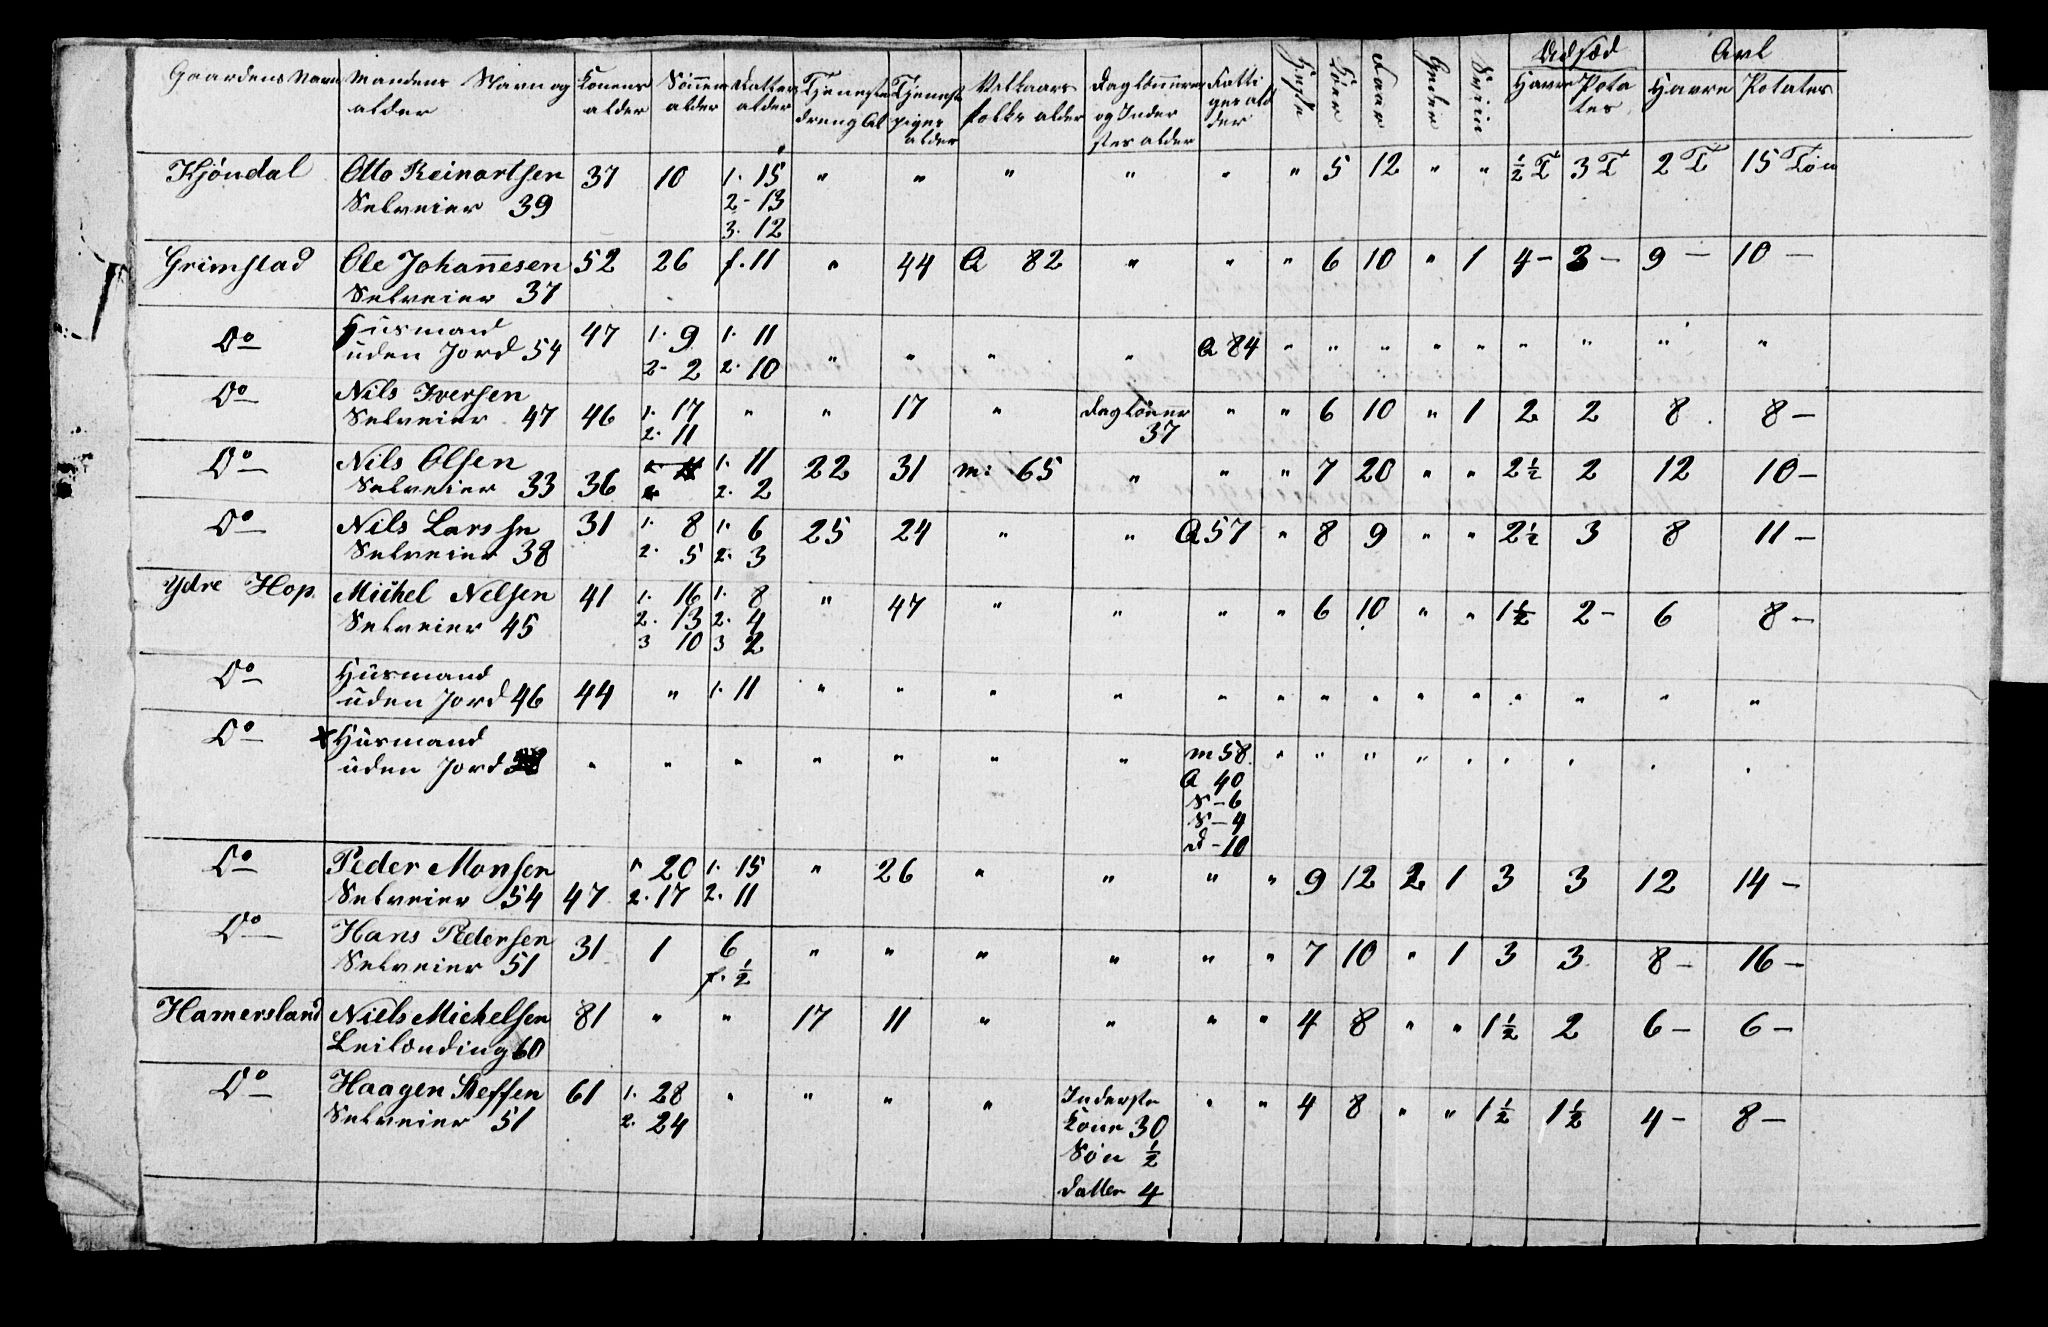 Gaardens Navn | Mandens Navn og alder | Konens alder | Sønnens alder | Datters alder | Tjenestedreng Al | Tjenestepiges alder | Vilkaarsfolks alder | Daglønnere og Inderstes alder | Fattiges alder | Heste | Køer | Faar | Geder | Sviin | Udsæd Havre | Potates | Avl Havre | Potates
Kjöndal | Otto Reinortsen | 37 | 10 | 1. 15 | " | " | " | " | " | " | 5 | 12 | " | " | ½ T | 3 T | 2 T | 15 Tøn
Selveier 39 | 2- 13
3. 12
Grimstad | Ole Johannesen | 52 | 26 | f. 11 | " | 44 | A 82 | " | " | " | 6 | 10 | " | 1 | 4 – | 3 – | 9 – | 10 –
Selveier 37
Do | Husmand | 47 | 1. 9 | 1. 11
uden Jord 54 | 2- 2 | 2. 10 | " | " | " | " | A 84 | " | " | " | " | " | " | " | " | "
Do | Nils Iversen
Selveier 47 | 46 | 1. 17 | " | " | 17 | " | Daglønner | " | " | 6 | 10 | " | 1 | 2 | 2 | 8 | 8 –
2. 11 | 37
Do | Nils Olsen | 1. 11 | 22 | 31 | m: 65 | " | " | " | 7 | 20 | " | " | 2½ | 2 | 12 | 10 –
Selveier 33 | 36 | 2. 2
Do | Nils Larssen | 31 | 1. 8 | 1. 6 | 25 | 24 | " | " | A 57 | " | 8 | 9 | " | " | 2½ | 3 | 8 | 11 –
Selveier 38 | 2. 5 | 2. 3
Ydre Hop. | Michel Nelsen | 41 | 1. 16 | 1. 8 | " | 47 | " | " | " | " | 6 | 10 | " | " | 1½ | 2 – | 6 | 8 –
Selveier 45 | 2. 13 | 2. 4
3 10 | 3 2
Do | Husmand
uden Jord 46 | 44 | " | 1. 11 | " | " | " | " | " | " | " | " | " | " | " | " | " | "
Do | x Husmand
uden Jord | " | " | " | " | " | " | " | m 58 | " | " | " | " | " | " | " | " | "
A 40
S – 6
S – 4
D – 10
Do | Peder Monsen | 1. 20 | 1. 15 | " | 26 | " | " | " | " | 9 | 12 | 2 | 1 | 3 | 3 | 12 | 14 –
Selveier 54 | 47 | 2. 17 | 2. 11
Do | Hans Pedersen | 31 | 1 | 6 | " | " | " | " | " | " | 7 | 10 | " | 1 | 3 | 3 | 8 – | 16 –
Selveier 51 | f. ½
Hamersland | Niels Michelsen | 81 | " | " | 17 | 11 | " | " | " | " | 4 | 8 | " | " | 1½ | 2 | 6 – | 6 –
Leilænding 60
Do | Haagen Steffen | 61 | 1. 28 | " | " | " | " | Inderste | " | " | 4 | 8 | " | " | 1½ | 1½ | 4 – | 8 –
Selveier 51 | 2. 24 | Kone 30
Søn ½
Datter 4